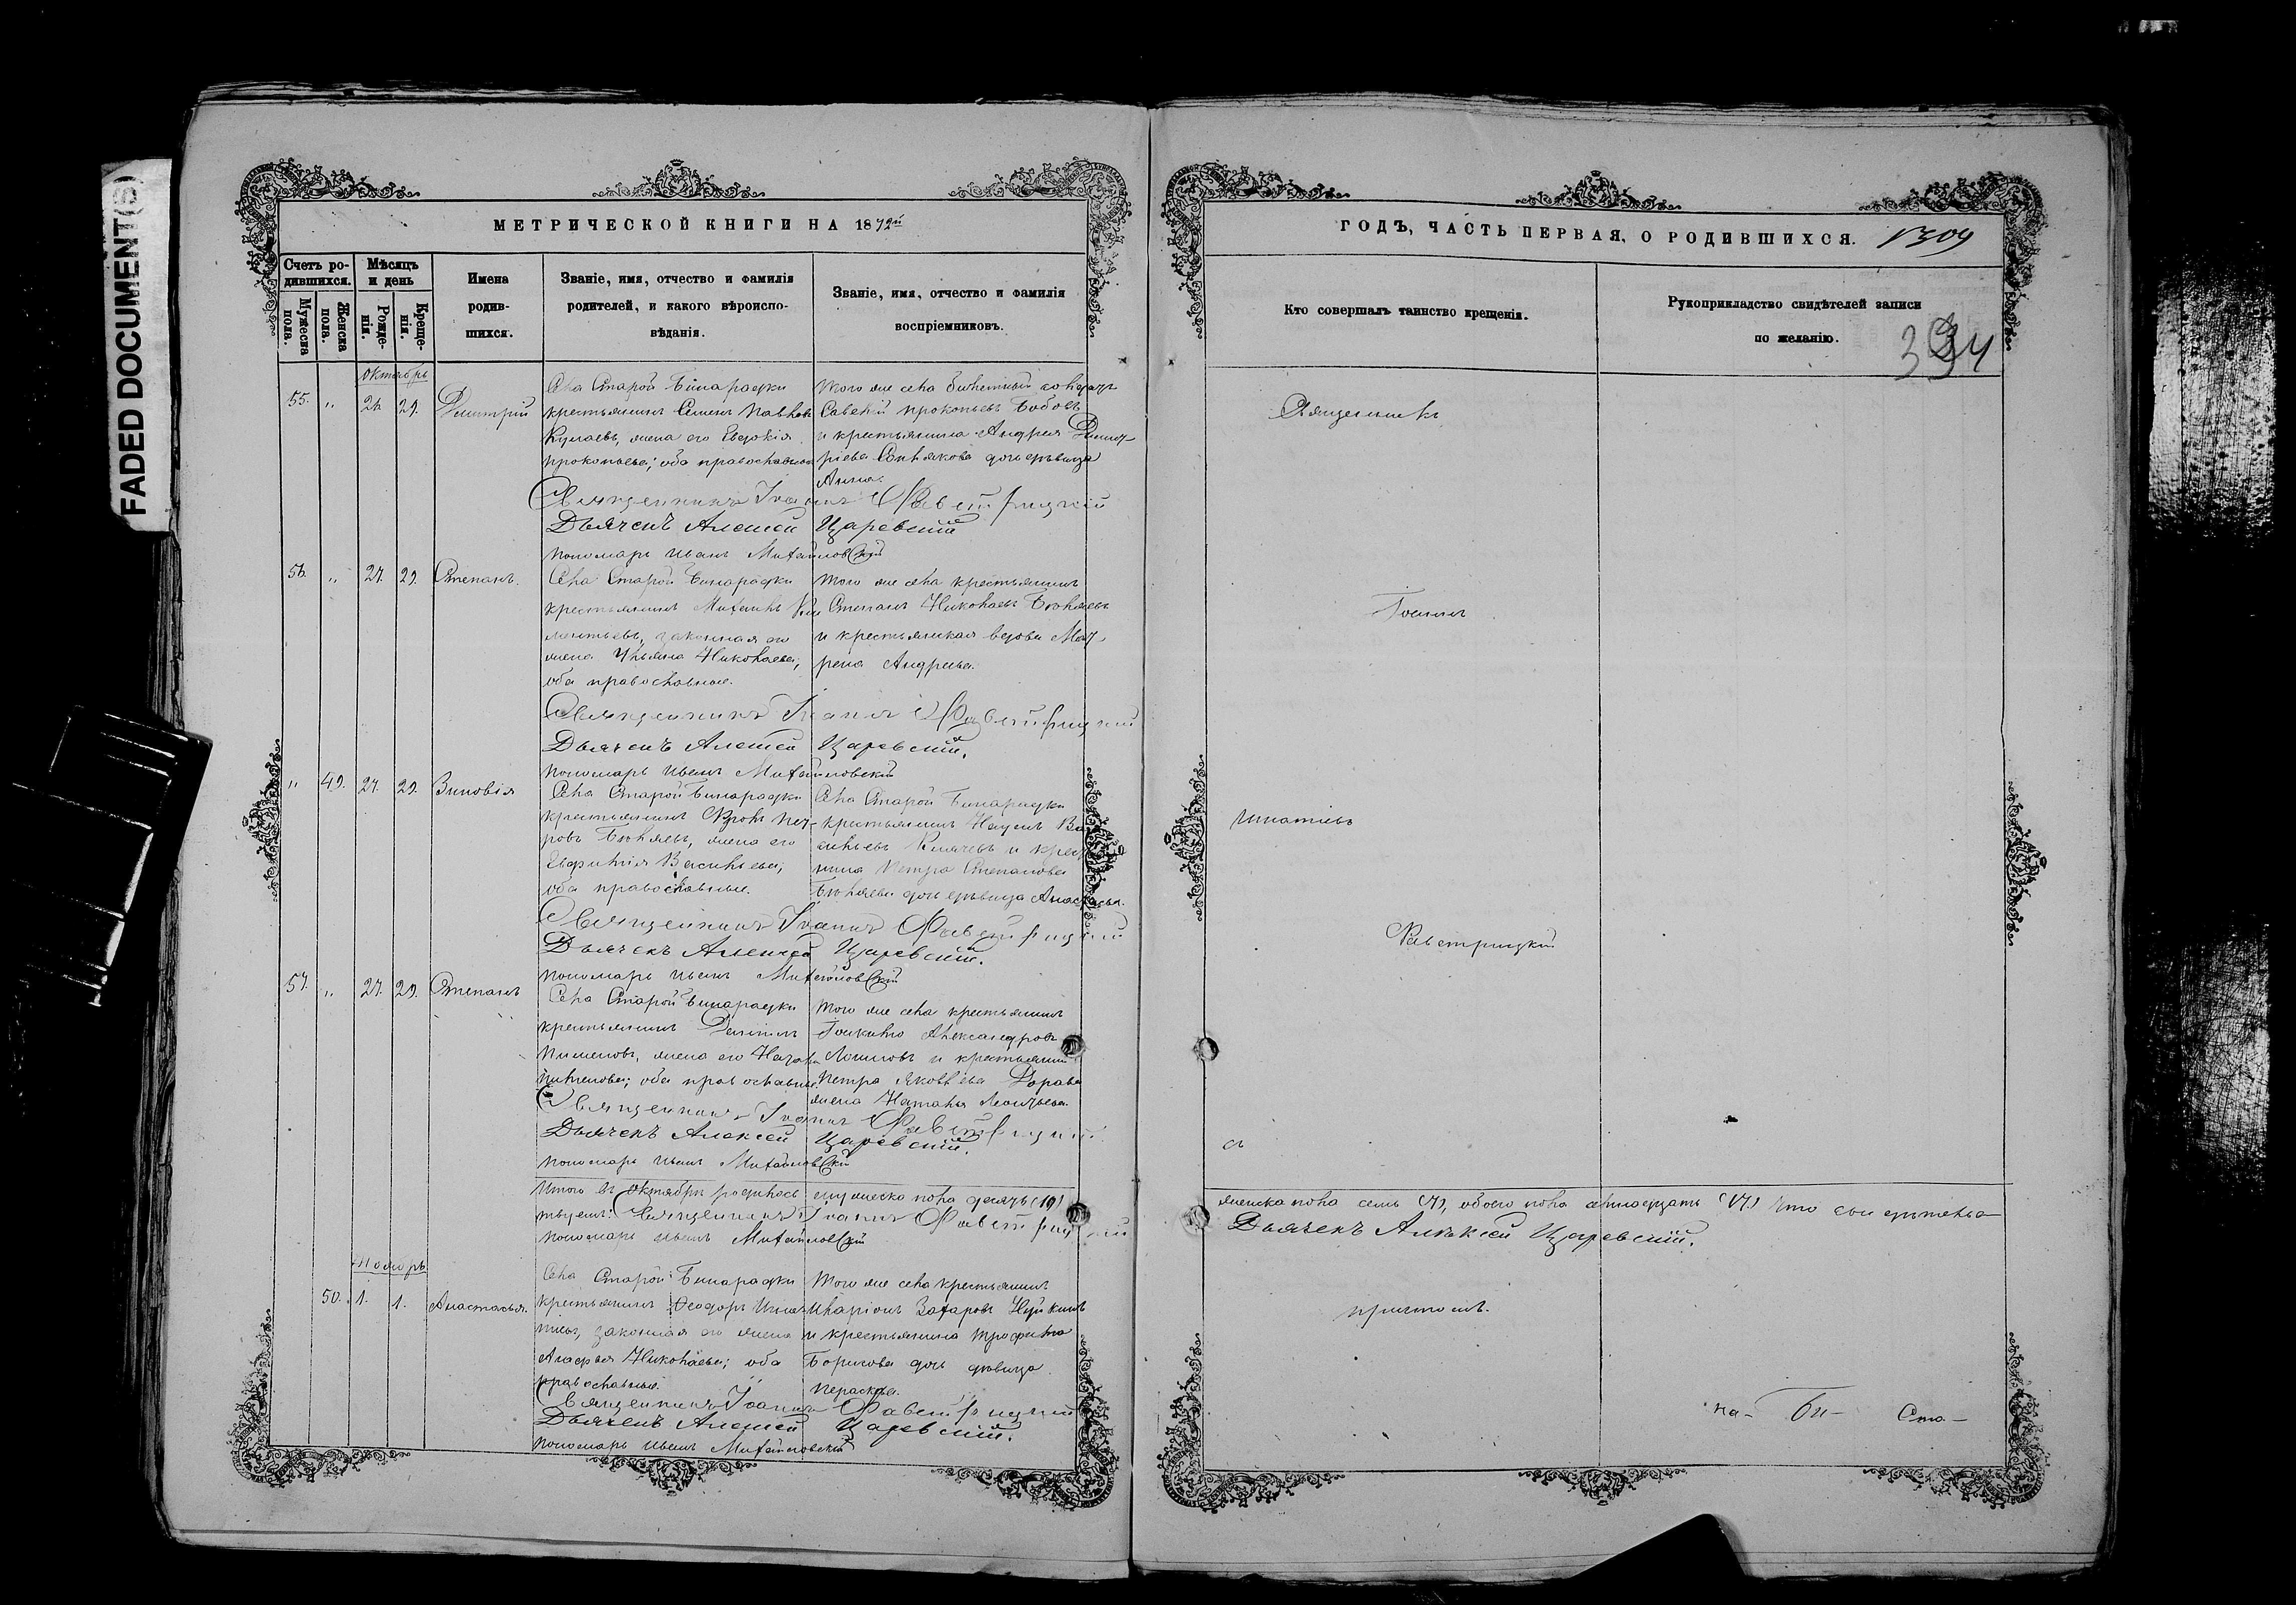 FADED DOCUMENT(S)
МЕТРИЧЕСКОЙ КНИГИ НА 1872й
Счетъ ро-
дившихся.
Мужеска
пола.
Женска
пола.
Мѣсяцъ
и день
Рожде-
нія.
Креще-
нія.
Имена
родив-
шихся.
Званіе, имя, отчество и фамилія
родителей, и какого вѣроиспо-
вѣданія.
Званіе, имя, отчество и фамилія
воспріемниковъ.
Октябрь
55. " 26 29. Димитрій
Села Старой Бинарадки
крестьянинъ Семенъ Павловъ
Кулаевъ, жена его Евдокія
Прокопьева; оба православные
Того же села билетный солдатъ
Савелій Прокопьевъ Бобовъ
и крестьянина Андрея Димит-
ріева дочь дѣвица
Анна.
Священникъ Іоаннъ Фавстрицкій
Дьячекъ Алексей Царевскій
Пономарь Иванъ Михайловскій
56. " 27. 29. Степанъ.
Села Старой Бинарадки
крестьянинъ Михаилъ Кли
ментьевъ, законная его
жена Ульяна Николаева,
оба православные.
Того же села крестьянинъ
Степанъ Николаевъ Бюляевъ
и крестьянская вдова Мат-
рена Андреева.
Священникъ Іоаннъ Фавстрицкій
Дьячекъ Алексей Царевскій.
Пономарь Иванъ Михайловскій
" 49. 27. 29. Зиновія
Села Старой Бинарадки
крестьянинъ Фролъ Пет-
ровъ Бюляевъ, жена его
Евфимія Васильева,
оба православные.
Села Старой Бинарадки
крестьянинъ Наумъ Ва
сильевъ и крест
нина Петра Степанова
Бюляева дочь дѣвица Анастасья.
Священникъ Іоаннъ Фавстрицкій
Дьячекъ Алексей Царевскій.
Пономарь Иванъ Михайловскій
57. " 27. 29. Степанъ
Села Старой Бинарадки
крестьянинъ Даніилъ
Пименовъ, жена его
оба православные
Того же села крестьянинъ
Александровъ
Логиновъ и крестьянин
Петра Яковлева
жена Наталья Леонтьева.
Священникъ Іоаннъ Фавстрицкій
Дьячекъ Алексей Царевскій.
Пономарь Иванъ Михайловскій
Итого въ Октябрѣ родилось мужеска пола десять (10)
Священникъ Іоаннъ Фавстрицкій
Пономарь Иванъ Михайловскій
Ноябрь
50. 1. 1. Анастасья.
Села Старой Бинарадки
крестьянинъ Феодоръ Игна-
тьевъ, законная его жена
Николаева; оба
православные.
Того же села крестьянинъ
Иларіонъ Захаровъ
и крестьянина Трофима
Борисова дочь дѣвица
Параскева.
Священникъ Іоаннъ Фавстрицкій
Дьячекъ Алексей Царевскій.
Пономарь Иванъ Михайловскій
ГОДЪ, ЧАСТЬ ПЕРВАЯ, О РОДИВШИХСЯ. 1309
Кто совершалъ таинство крещенія.
Рукоприкладство свидѣтелей записи
по желанію.
Священникъ
Іоаннъ
Игнатьевъ
Фавстрицкій
съ
женска пола семь (7), обоего пола семнадцать (17) что свидѣтель
Дьячекъ Алексей Царевскій.
причтомъ.
на- Би- Ста-